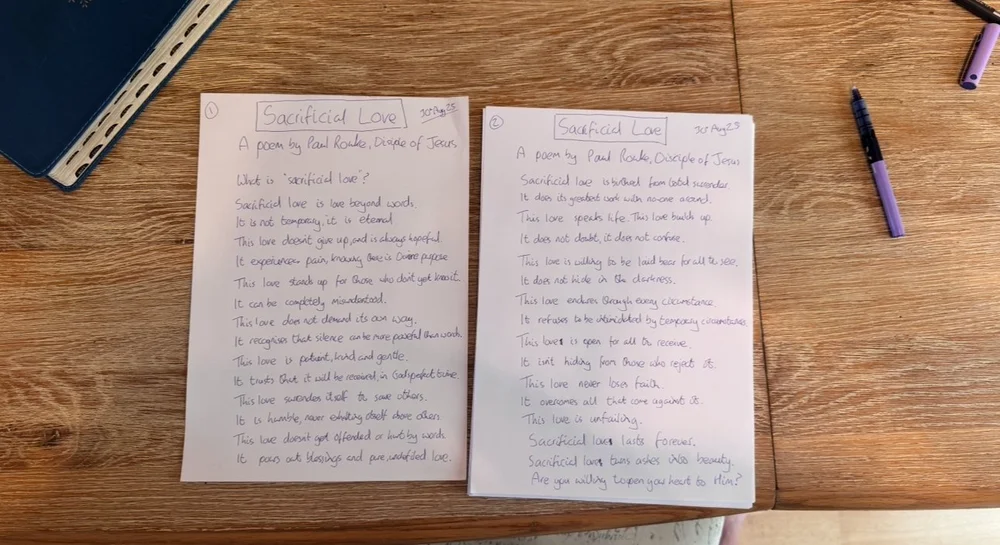 1
Sacrificial Love
Aug 25
A poem by Paul Rouke, Disciple of Jesus
What is "sacrificial love"?
Sacrificial love is love beyond words.
It is not temporary, it is eternal
This love doesn't give up, and is always hopeful.
It experiences pain, knowing there is Divine purpose
This love stands up for those who don't yet know it.
It can be completely misunderstood.
This love does not demand its own way.
It recognises that silence can be more powerful than words.
This love is patient, kind and gentle.
It trusts that it will be received, in God's perfect time.
This love surrenders itself to save others.
It is humble, never exhalting itself above others
This love doesn't get offended or hurt by words.
It pours out blessings and pure, undefiled love.
2
Sacrificial Love
Aug 25
A poem by Paul Rouke, Disciple of Jesus
Sacrificial love is birthed from total surrender.
It does its greatest work with no-one around.
This love speaks life. This love builds up.
It does not doubt, it does not confuse.
This love is willing to be laid bear for all to see.
It does not hide in the darkness.
This love endures through every circumstance.
It refuses to be intimidated by temporary circumstances.
This love is open for all to receive.
It isn't hiding from those who reject it.
This love never loses faith.
It overcomes all that come against it.
This love is unfailing.
Sacrificial love lasts forever.
Sacrificial love turns ashes into beauty.
Are you willing to open your heart to Him?